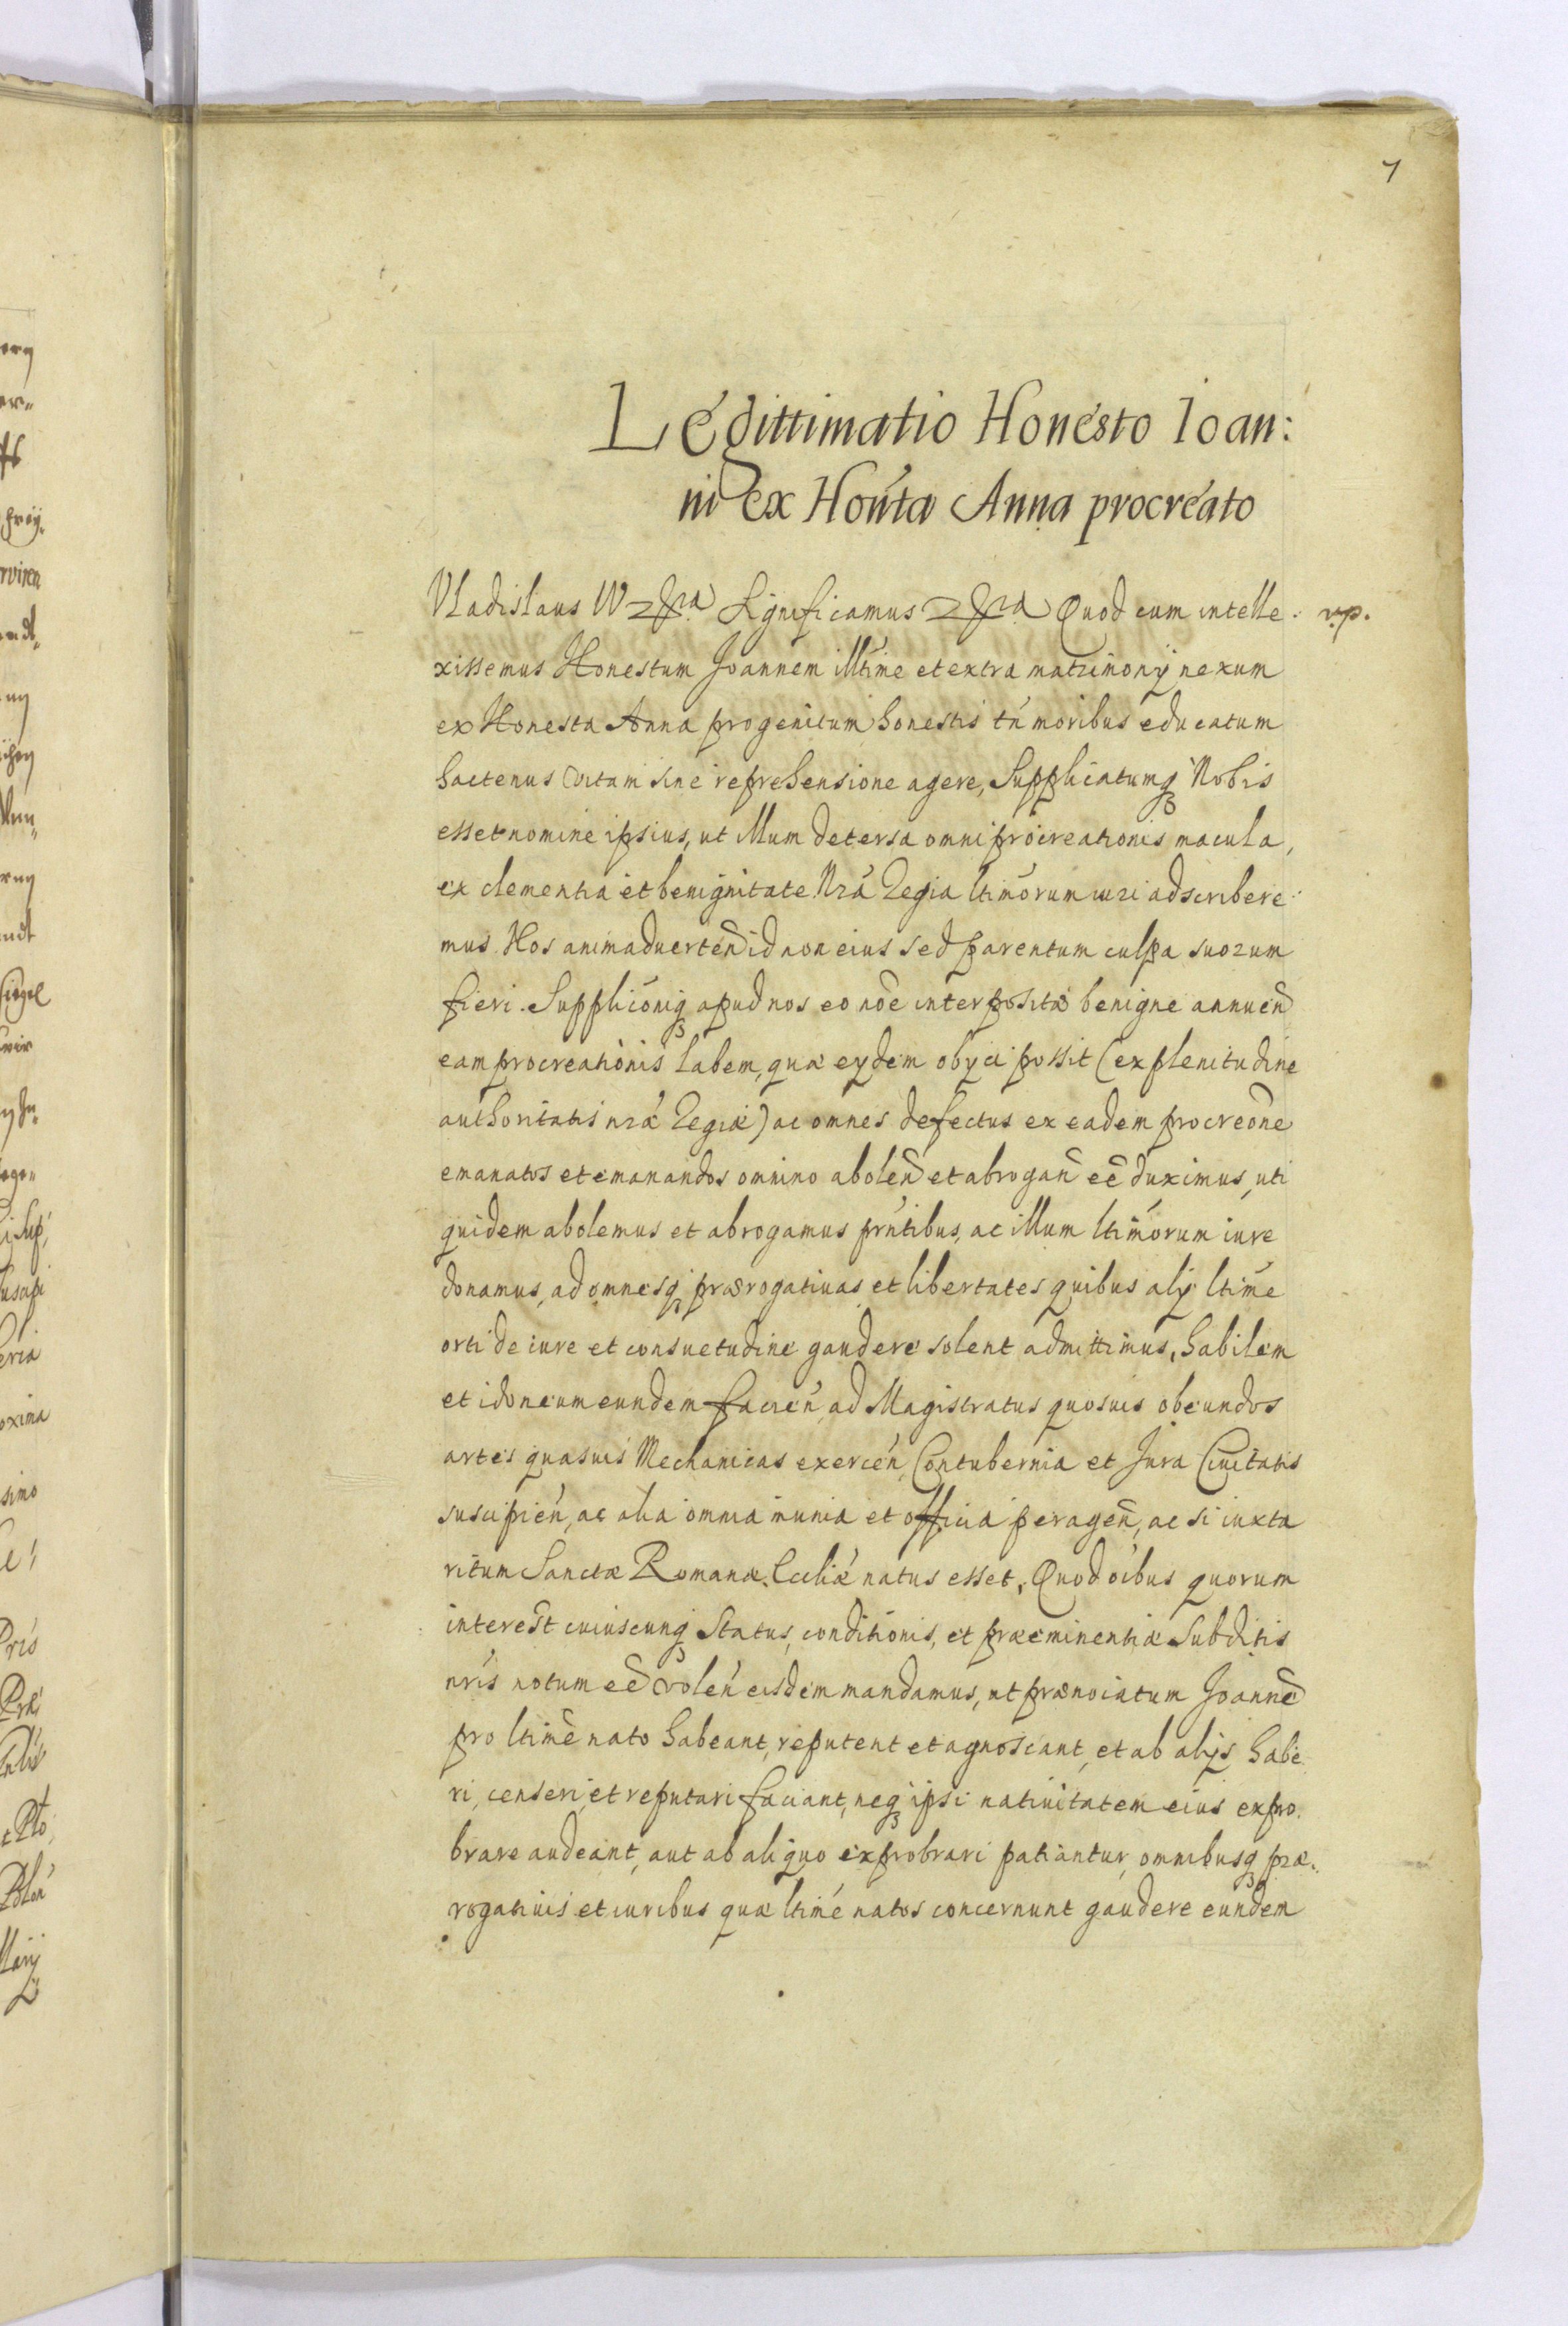 7
Legittimatio Honesto Ioan:
ni ex Hoñta Anna procreato
Vladislaus IV &ra Significamus &ra Quod cum intelle: v.p.
xissemus Honestum Joannem illtime et extra matrimonÿ nexum
ex Honesta Anna progenitum honestis tñ moribus educatum
hactenus vitam sine reprehensione agere, Supplicatumq Nobis
esset nomine ipsius, ut illum detersa omni procreationis macula,
ex clementia et benignitate Nrá Regia ltimorum iuri adscribere:
mus. Nos animaduerteñ id non eius sed parentum culpa suorum
fieri. Supplicóniq apud nos eo nóe interpositæ benigne annueñ
eam procreationis labem, quæ eydem obyci possit (ex plenitudine
authoritatis nrá Regiæ) ac omnes defectus ex eadem procreóne
emanatos et emanandos omnino aboleñ et abrogañ eē duximus, uti
quidem abolemus et abrogamus prńtibus, ac illum ltimorum iure
donamus, ad omnesq prærogatiuas et libertates quibus alÿ ltime
orti de iure et consuetudine gaudere solent admittimus, habilem
et idoneum eundem facień ad Magistratus quosuis obeundos
artes quasuis Mechanicas exerceń, Contubernia et Jura Ciuitatis
suscipień, ac alia omnia munia et officia perageñ, ac si iuxta
ritum Sanctæ Romanæ Eccliæ natus esset, Quod oibus quorum
interest cuiuscunq Status, conditionis, et præeminentiæ Subditis
nris notum eē voleń eisdem mandamus, ut prænoiatum Joannē
pro ltimē nato habeant, reputent et agnoscant, et ab alijs habe
ri, censeri, et reputari faciant, neq ipsi natiuitatem eius expro:
brare audeant, aut ab aliquo exprobrari patiantur, omnibusq præ:
rogatiuis et iuribus quæ ltimé natos concernunt gaudere eundem